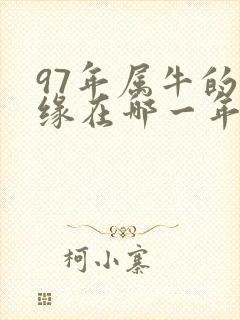 97年属牛的
缘在哪一年
柯小寨